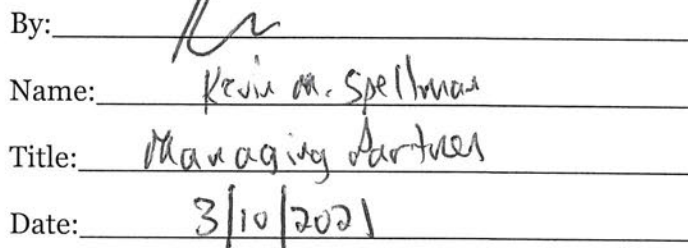 By:
Name: Kevin M. Spellman
Title: Managing Partner
Date: 3/10/2021